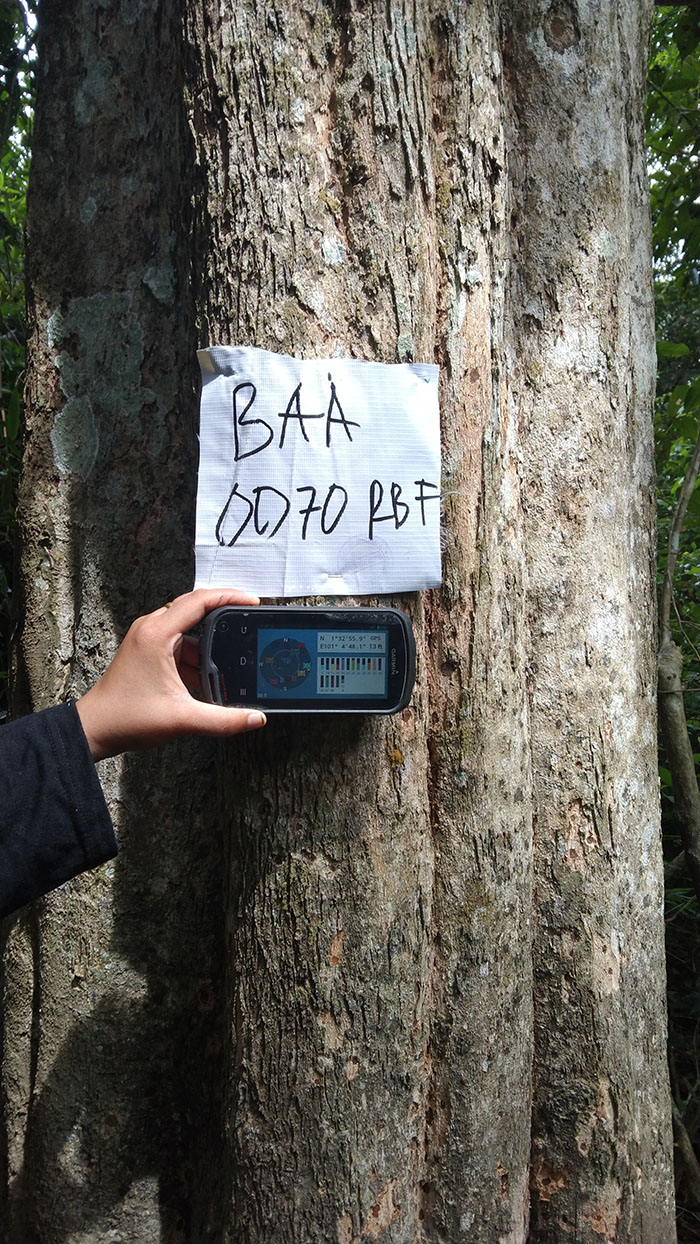 BAA
0070 RBF
N 1°32'55.9" GPS
E101° 4'48.1" 13ft
GARMIN